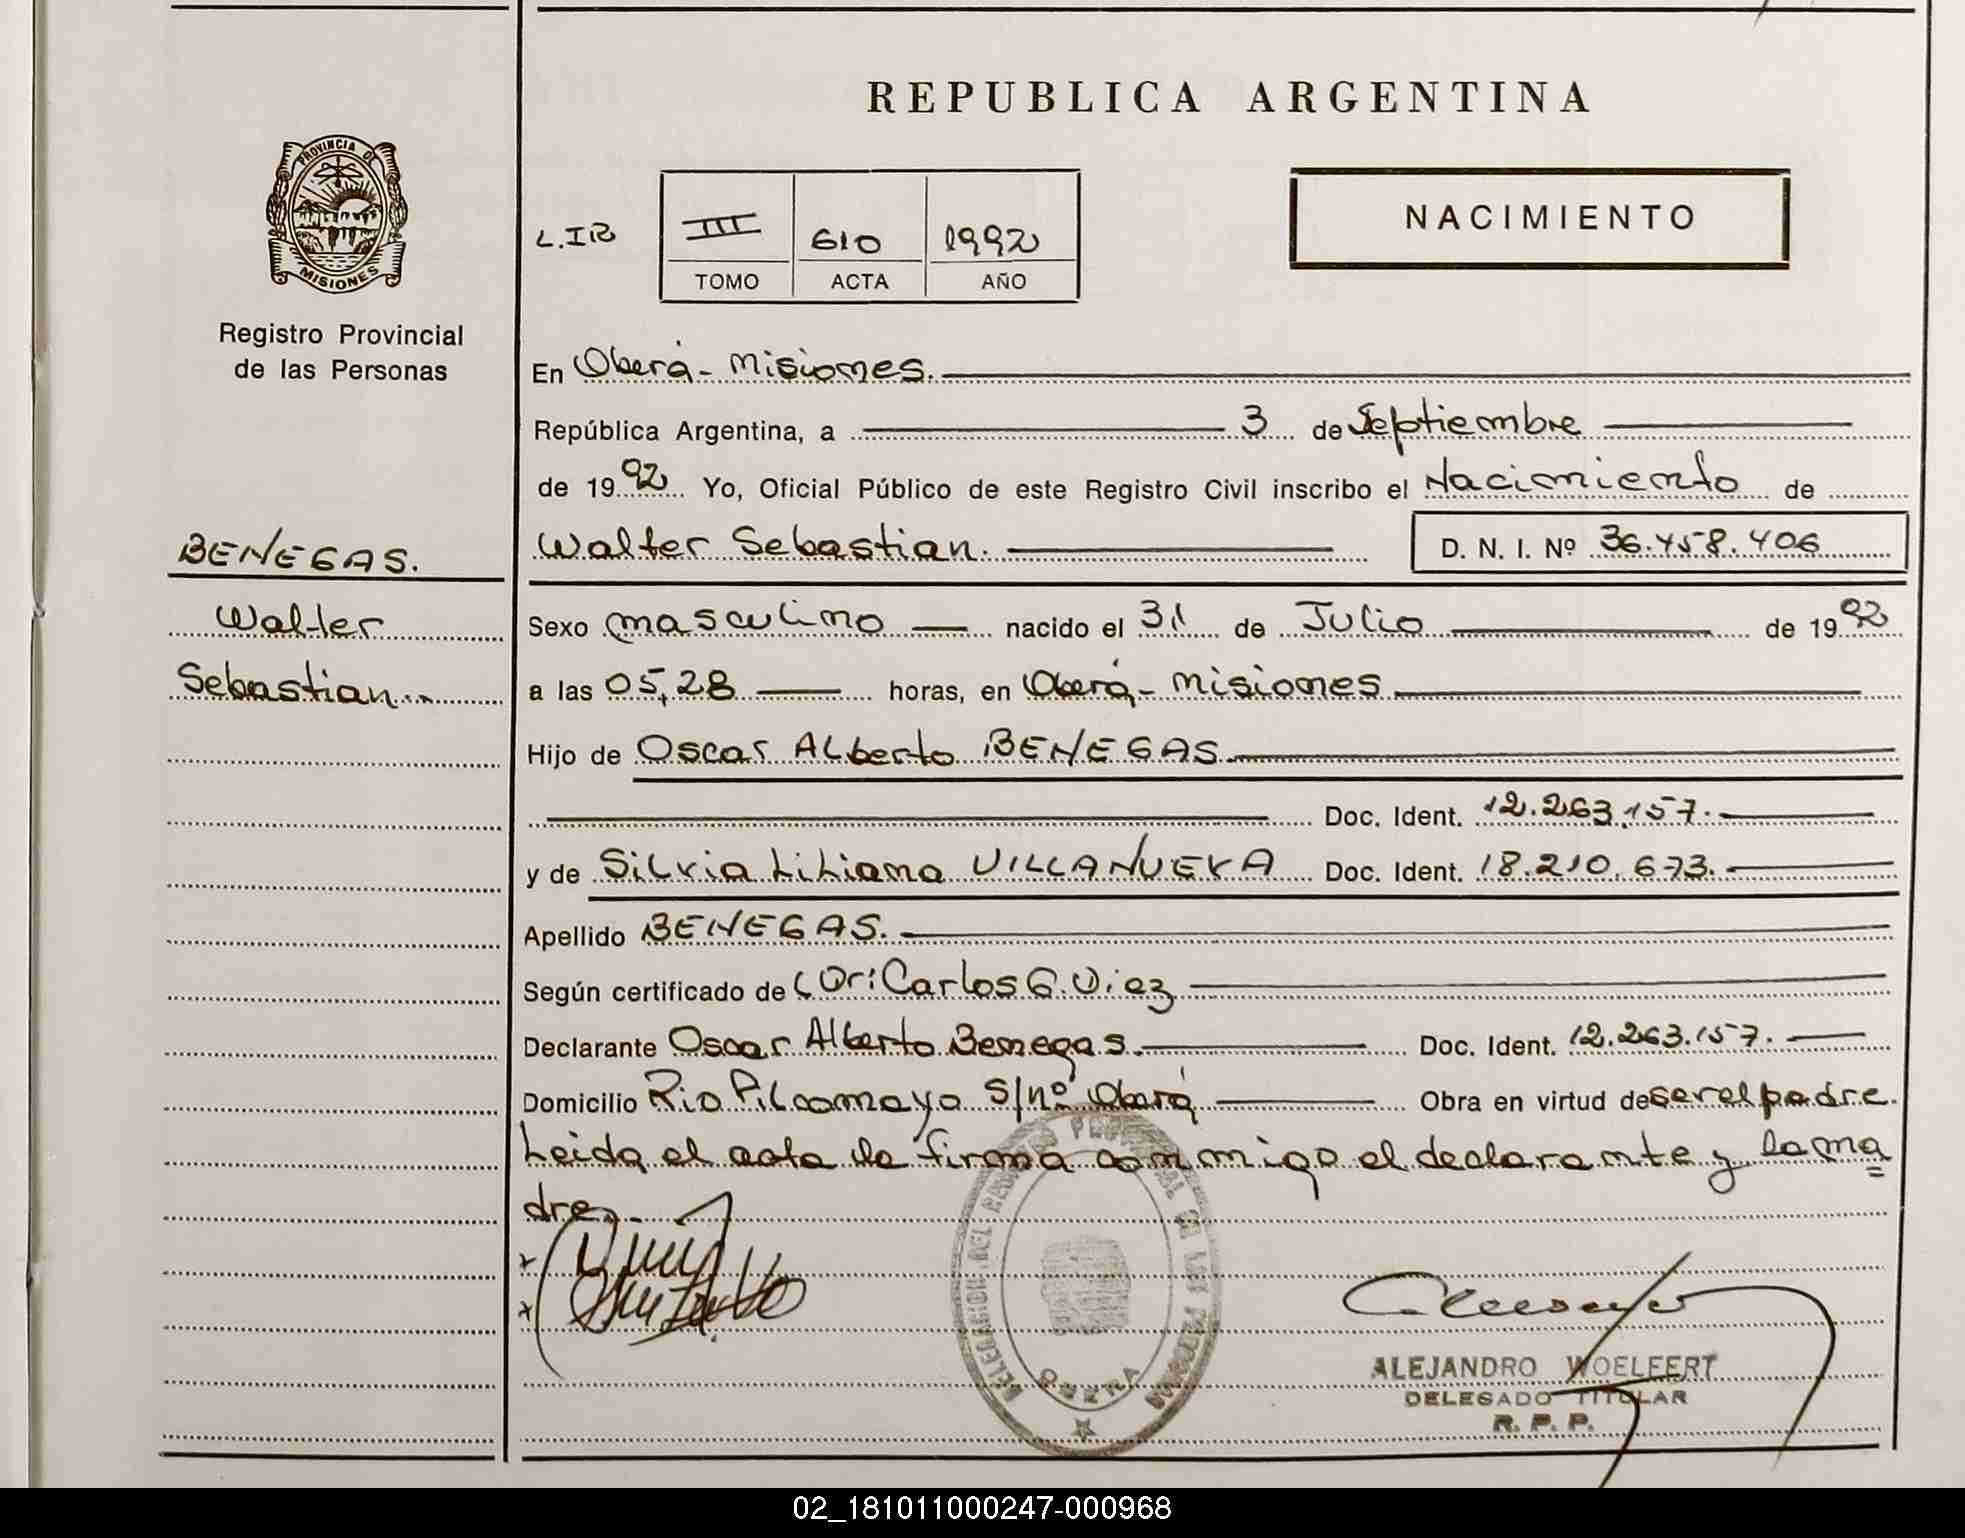 REPUBLICA ARGENTINA
PROVINCIA DE
MISIONES
Registro Provincial
de las Personas
L.IR
III 610 1992
TOMO ACTA AÑO
NACIMIENTO
En Oberá - Misiones.
República Argentina, a 3 de Septiembre
de 1992 Yo, Oficial Público de este Registro Civil inscribo el Nacimiento de
BENEGAS.
Walter Sebastian. D. N. I. Nº 36.458.406
Walter
Sexo masculino nacido el 31 de Julio de 1992
Sebastian..
a las 05,28 horas, en Oberá - Misiones
Hijo de Oscar Alberto BENEGAS
Doc. Ident. 12.263.157.
y de Silvia Liliana VILLANUEVA Doc. Ident. 18.210.673.
Apellido BENEGAS.
Según certificado de Dr: Carlos G. Diez
Declarante Oscar Alberto Benegas. Doc. Ident. 12.263.157.
Domicilio Rio Pilcomayo S/nº Oberá Obra en virtud de ser el padre.
Leida el acta la firma conmigo el declarante y la ma
dre.
DELEGACION DEL REGISTRO PROVINCIAL DE LAS PERSONAS
OBERA
ALEJANDRO WOELFERT
DELEGADO TITULAR
R. P. P.
02_181011000247-000968